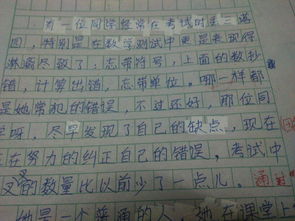 有一位同学经常在考试时丢三落
四，特别是在数学测试中更是表现得
淋漓尽致了：忘带符号，上面的数抄
错，计算出错，忘带单位。哪一样都
是她常犯的错误，不过还好，那位同
学呀，尽早发现了自己的缺点，现在
在努力的纠正自己的错误，考试中
叉的数量比以前少了一点儿。
她是一个普通的人，她在课堂上